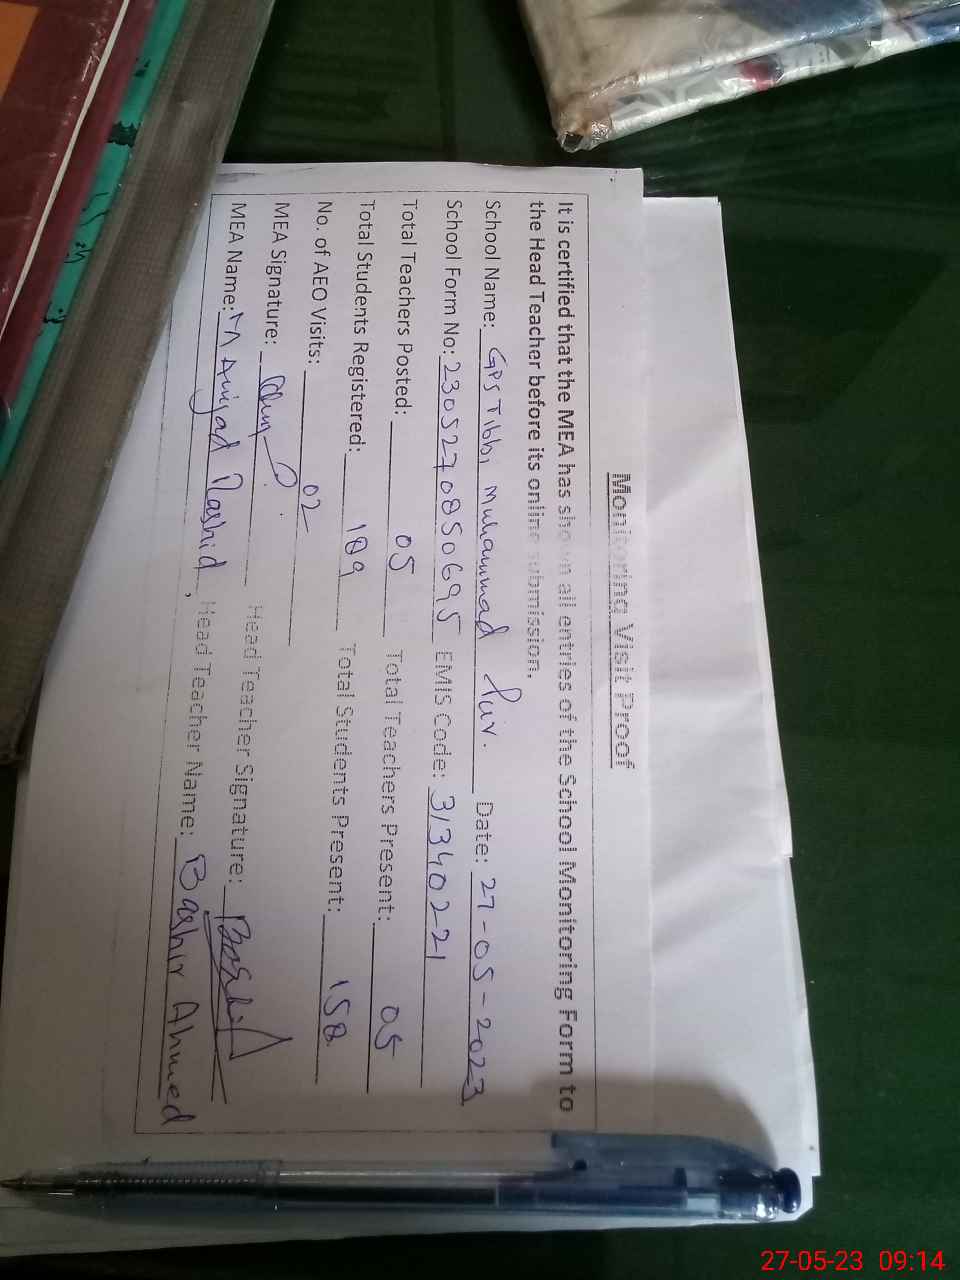 Monitoring Visit Proof
It is certified that the MEA has shown all entries of the School Monitoring Form to
the Head Teacher before its online submission.
School Name: GPS Tibbi Muhammad Pur. Date: 27-05-2023
School Form No: 2305270850695 EMIS Code: 31340221
Total Teachers Posted: 05 Total Teachers Present: 05
Total Students Registered: 189 Total Students Present: 158
No. of AEO Visits: 02
MEA Signature: Head Teacher Signature: Bashir
MEA Name: M Amjad Rashid, Head Teacher Name: Bashir Ahmed
27-05-23 09:14